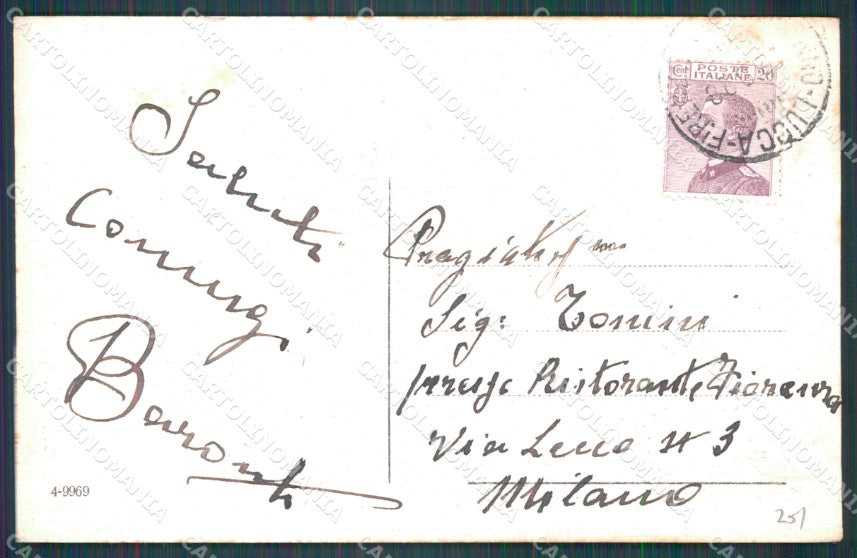 Saluti
Coniugi
Baronti
POSTE
ITALIANE
Cent 20
LUCCA-FIRE
Sig: Tomini
presso Ristorante
Via Lecco # 3
Milano
4-9969
25/
CARTOLINOMANIA